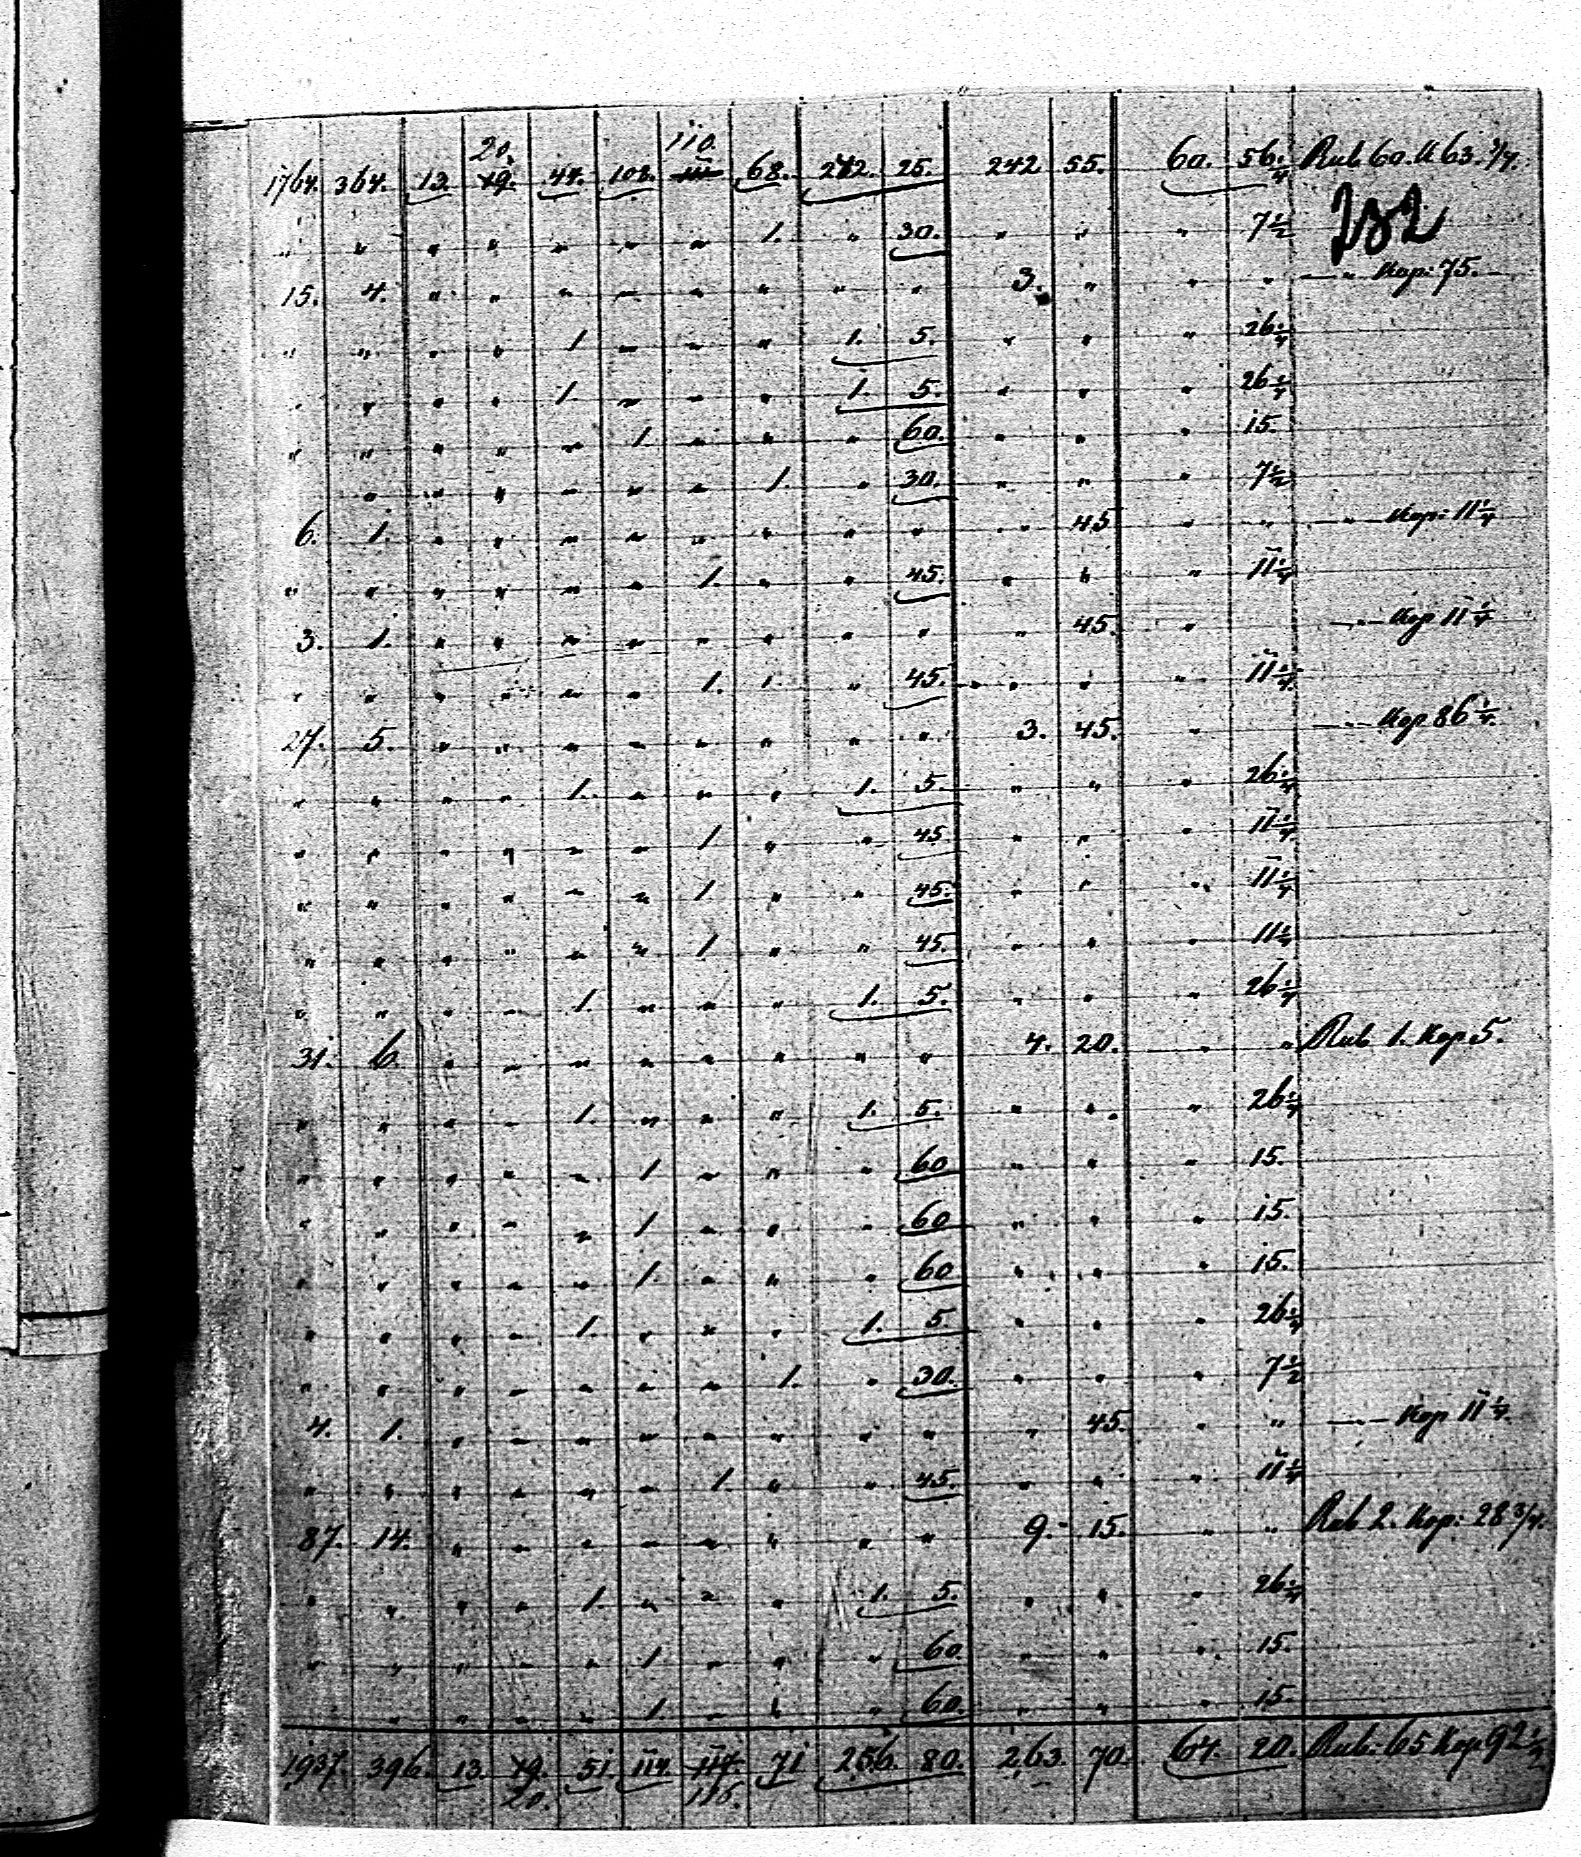 20. 110.
1764. 364. 13. 19. 44. 108. 111 68. 242. 25. 242 55. 60. 56 1/4 Rub 60. K 63. 3/4.
" " " " " " " 1. " 30. " " " 7 1/2 232
15. 4. " " " " " " " " 3. " " " — " — Kop: 75.
" " " " 1 " " " 1. 5. " " " 26 1/4
" " " " 1 " " " 1. 5. " " " 26 1/4
" " " " " 1. " " " 60. " " " 15.
" " " " " " 1. " 30. " " " 7 1/2
6. 1. " " " " " " " " " 45 " " — " — Kop: 11 1/4
" " " " " " 1. " " 45. " " " 11 1/4
3. 1. " " " " " " " " " 45. " — " — Kop 11 1/4
" " " " " " 1. 1. " 45. " " " 11 1/4
27. 5. " " " " " " " " 3. 45. " — " — Kop 86 1/4.
" " " " 1. " " " 1. 5. " " " 26 1/4
" " " " " " 1 " " 45 " " " 11 1/4
" " " " " " 1 " " 45. " " " 11 1/4
" " " " " " 1 " " 45. " " " 11 1/4
" " " " 1. " " " 1. 5. " " " 26 1/4
31. 6. " " " " " " " " 4. 20. " " Rub 1. Kop 5.
" " " " 1. " " " 1. 5. " " " 26 1/4
" " " " " 1 " " " 60 " " " 15.
" " " " " 1 " " " 60 " " " 15.
" " " " " 1. " " " 60 " " " 15.
" " " " 1. " " " 1. 5 " " " 26 1/4
" " " " " " " 1. " 30. " " " 7 1/2
4. 1. " " " " " " " " " 45. " " — " — Kop 11 1/4.
" " " " " " 1. " " 45. " " " 11 1/4
87. 14. " " " " " " " " 9. 15. " " Rub 2. Kop: 28 3/4.
" " " " 1. " " " 1. 5. " " " 26 1/4
" " " " " 1 " " " 60 " " " 15.
" " " " 1 " " " 60. " " " 15.
1937. 396. 13. 19. 51. 114. 117. 71 256. 80. 263. 70. 64. 20. Rub: 65 Kop 92 1/2
20. 116.